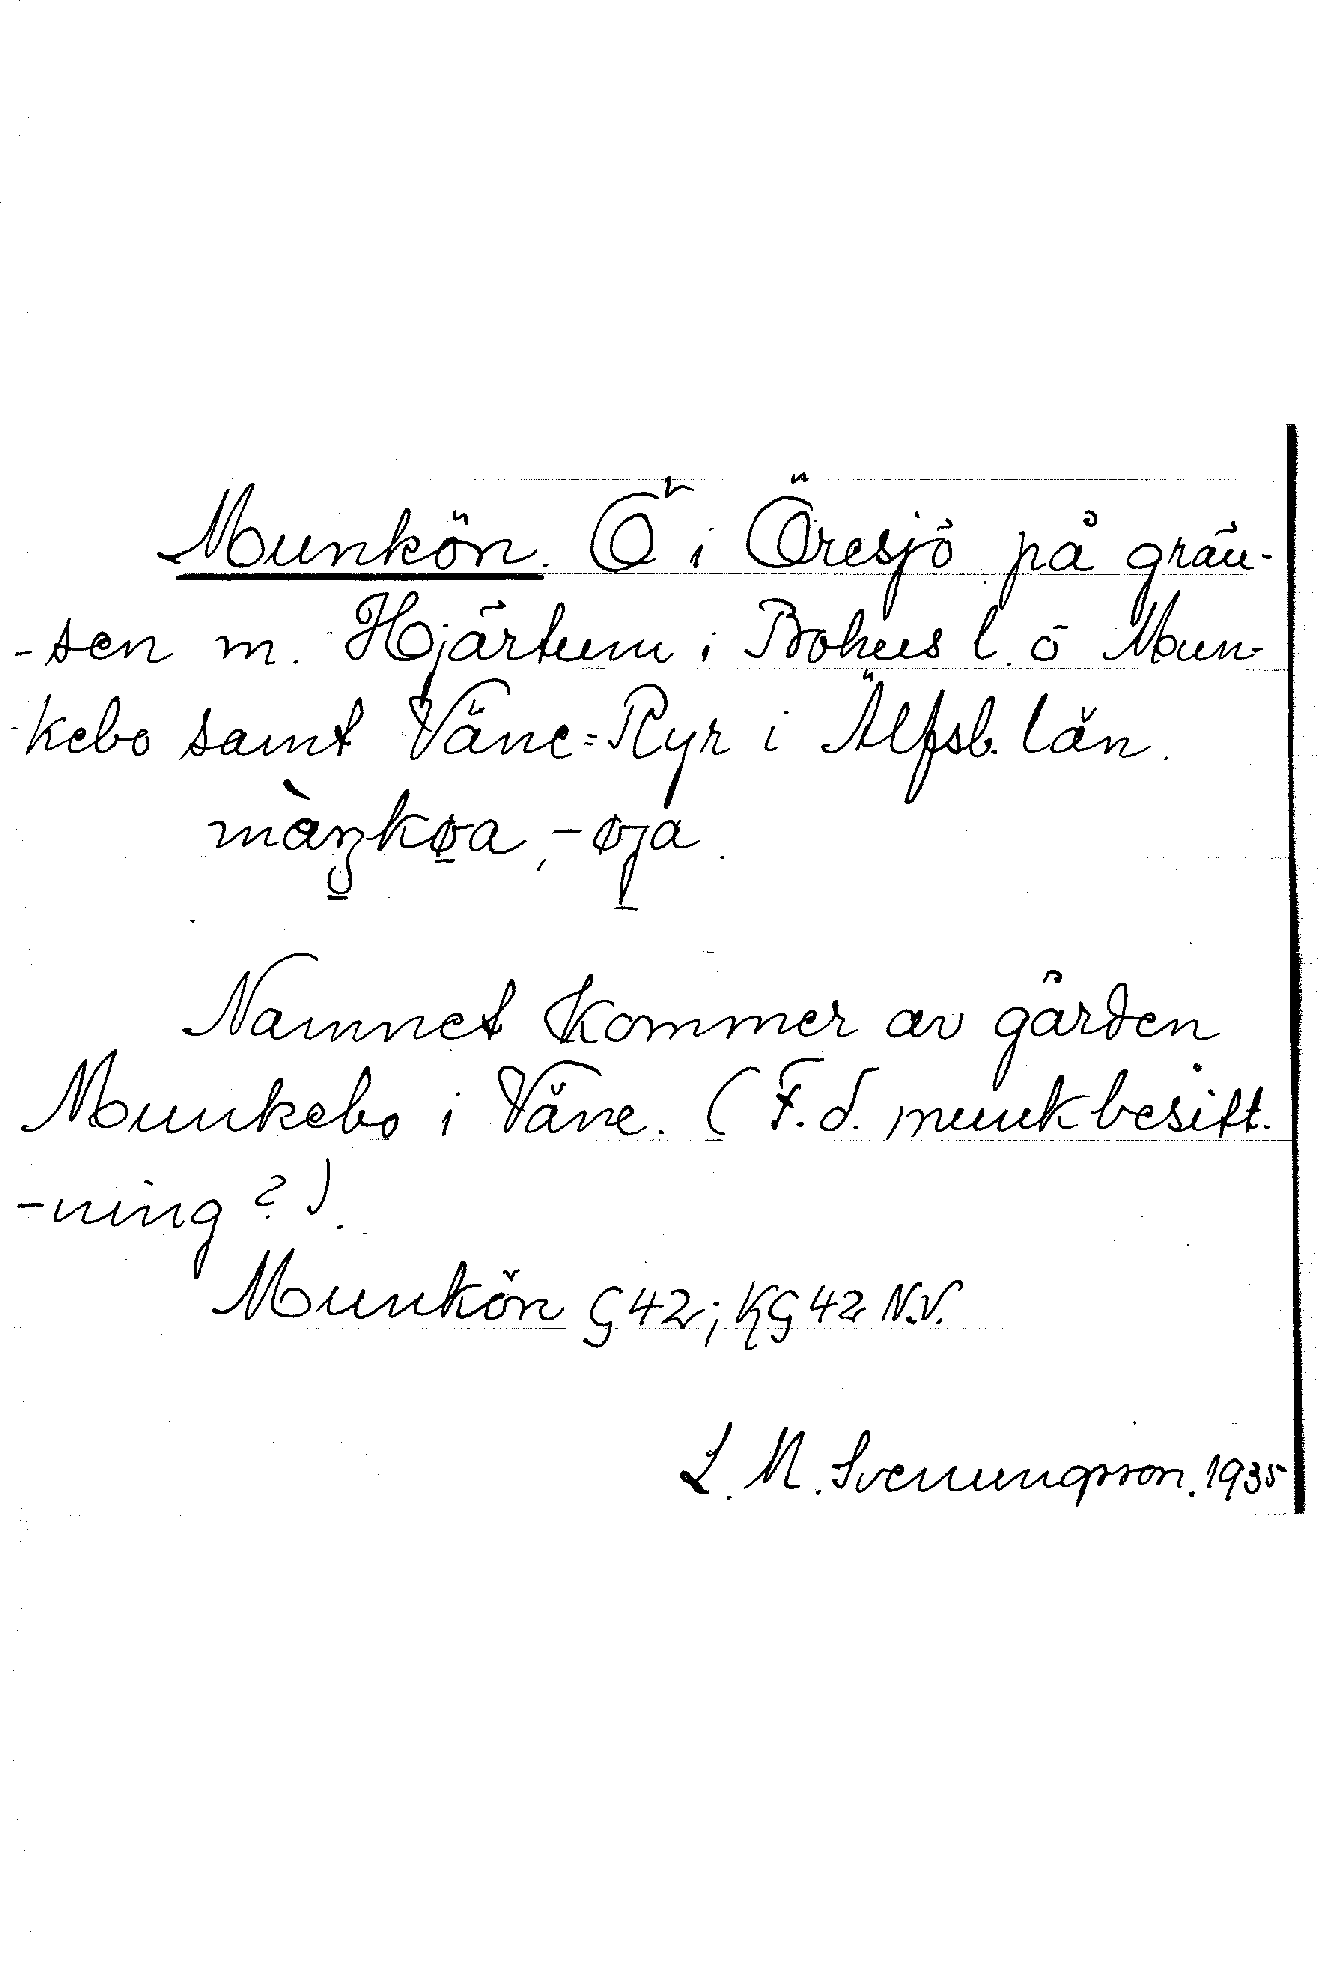 Munkön. Ö i Öresjö på grän-
-sen m. Hjärtum i Bohus l. o Mun-
-kebo samt Väne=Ryr i Älfsb. län.
màŋkøa, -øja
Namnet kommer av gården
Munkebo i Väne. (F.d. munkbesitt.
-ning?).
Munkön G42; KG42 N.V.
L. M. Svenungsson. 1935